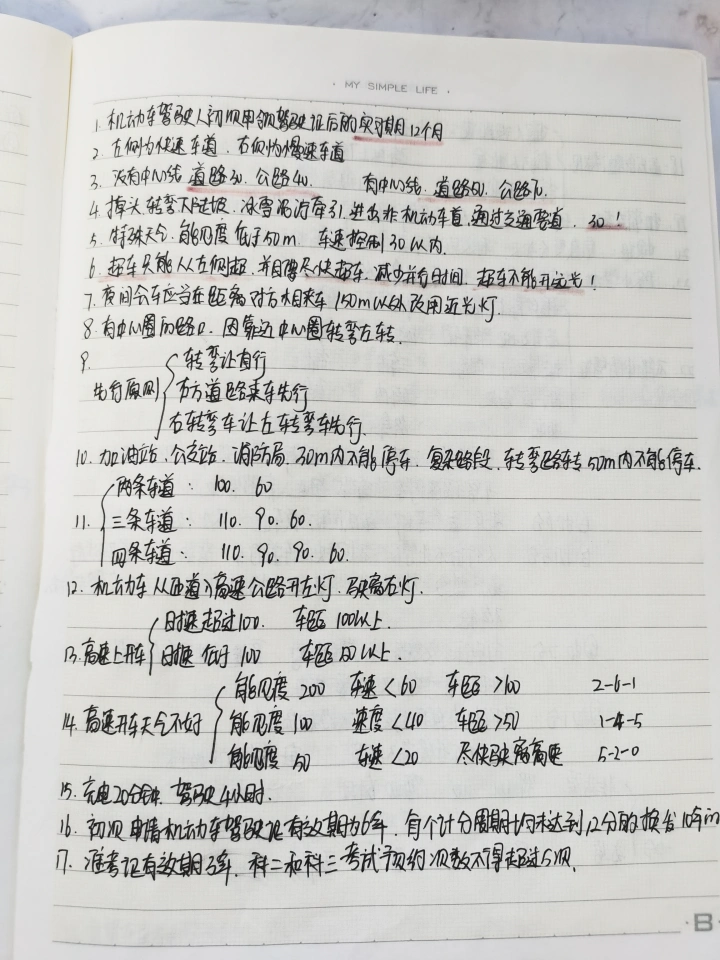 · MY SIMPLE LIFE ·
1. 机动车驾驶人初次申领驾驶证后的实习期12个月
2. 左侧为快速车道. 右侧为慢速车道
3. 没有中心线 道路30. 公路40. 有中心线. 道路50. 公路70.
4. 掉头. 转弯. 下陡坡. 冰雪泥泞. 牵引. 进出非机动车道. 通过交通窄道. 30!
5. 特殊天气. 能见度低于50m 车速控制30以内.
6. 超车只能从左侧超. 并且得尽快超车. 减少并行时间. 超车不能开远光!
7. 夜间会车应当在距离对方来车150m以外改用近光灯.
8. 有中心圈的路口. 因靠近中心圈转弯左转.
9. 先行原则
转弯让直行
右方道路来车先行
右转弯车让左转弯车先行.
10. 加油站. 公交站. 消防局. 30m内不能停车. 复杂路段. 转弯路转50m内不能停车.
11.
两条车道: 100. 60
三条车道: 110. 90. 60.
四条车道: 110. 90. 90. 60.
12. 机动车从匝道入高速公路开左灯. 驶离右灯.
13. 高速上开车
时速超过100. 车距100以上.
时速低于100 车距50以上.
14. 高速开车天气不好
能见度200 车速<60 车距>100 2-6-1
能见度100 速度<40 车距>50 1-4-5
能见度50 车速<20 尽快驶离高速 5-2-0
15. 充电20分钟. 驾驶4小时.
16. 初次申请机动车驾驶证有效期为6年. 每个计分周期均未达到12分的换发10年的
17. 准考证有效期3年. 科二和科三考试预约次数不得超过5次.
· B ·